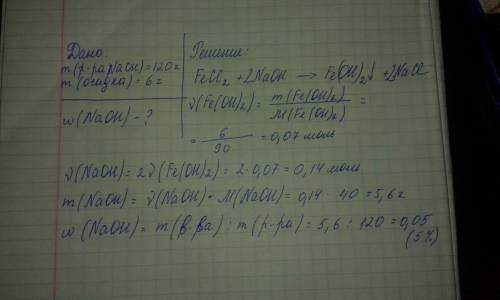 Дано:
m(р-ра NaOH)=120г
m(осадка)=6г
w(NaOH)-?
Решение:
FeCl₂ + 2NaOH → Fe(OH)₂↓ + 2NaCl
ν(Fe(OH)₂) = m(Fe(OH)₂) / M(Fe(OH)₂) =
= 6 / 90 = 0,07 моль
ν(NaOH) = 2ν(Fe(OH)₂) = 2 · 0,07 = 0,14 моль
m(NaOH) = ν(NaOH) · M(NaOH) = 0,14 · 40 = 5,6 г
w (NaOH) = m(в-ва) : m(р-ра) = 5,6 : 120 = 0,05
(5%)